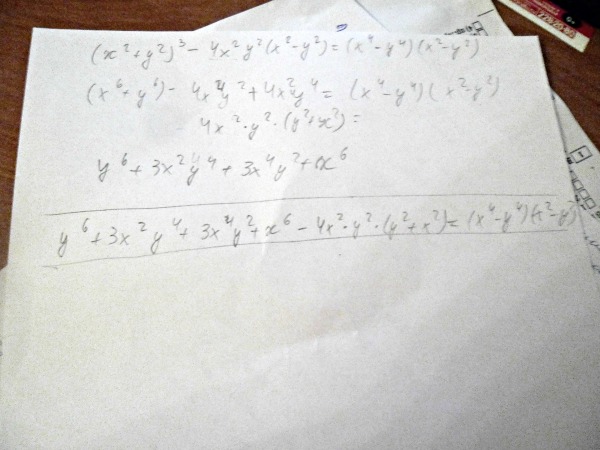 (x²+y²)³ - 4x²y²(x²-y²) = (x⁴-y⁴)(x²-y²)
(x⁶+y⁶) - 4x⁴y²+4x²y⁴ = (x⁴-y⁴)(x²-y²)
4x²·y²·(y²+x²) =
y⁶+3x²y⁴+3x⁴y²+x⁶
y⁶+3x²y⁴+3x⁴y²+x⁶-4x²·y²·(y²+x²) = (x⁴-y⁴)(x²-y²)